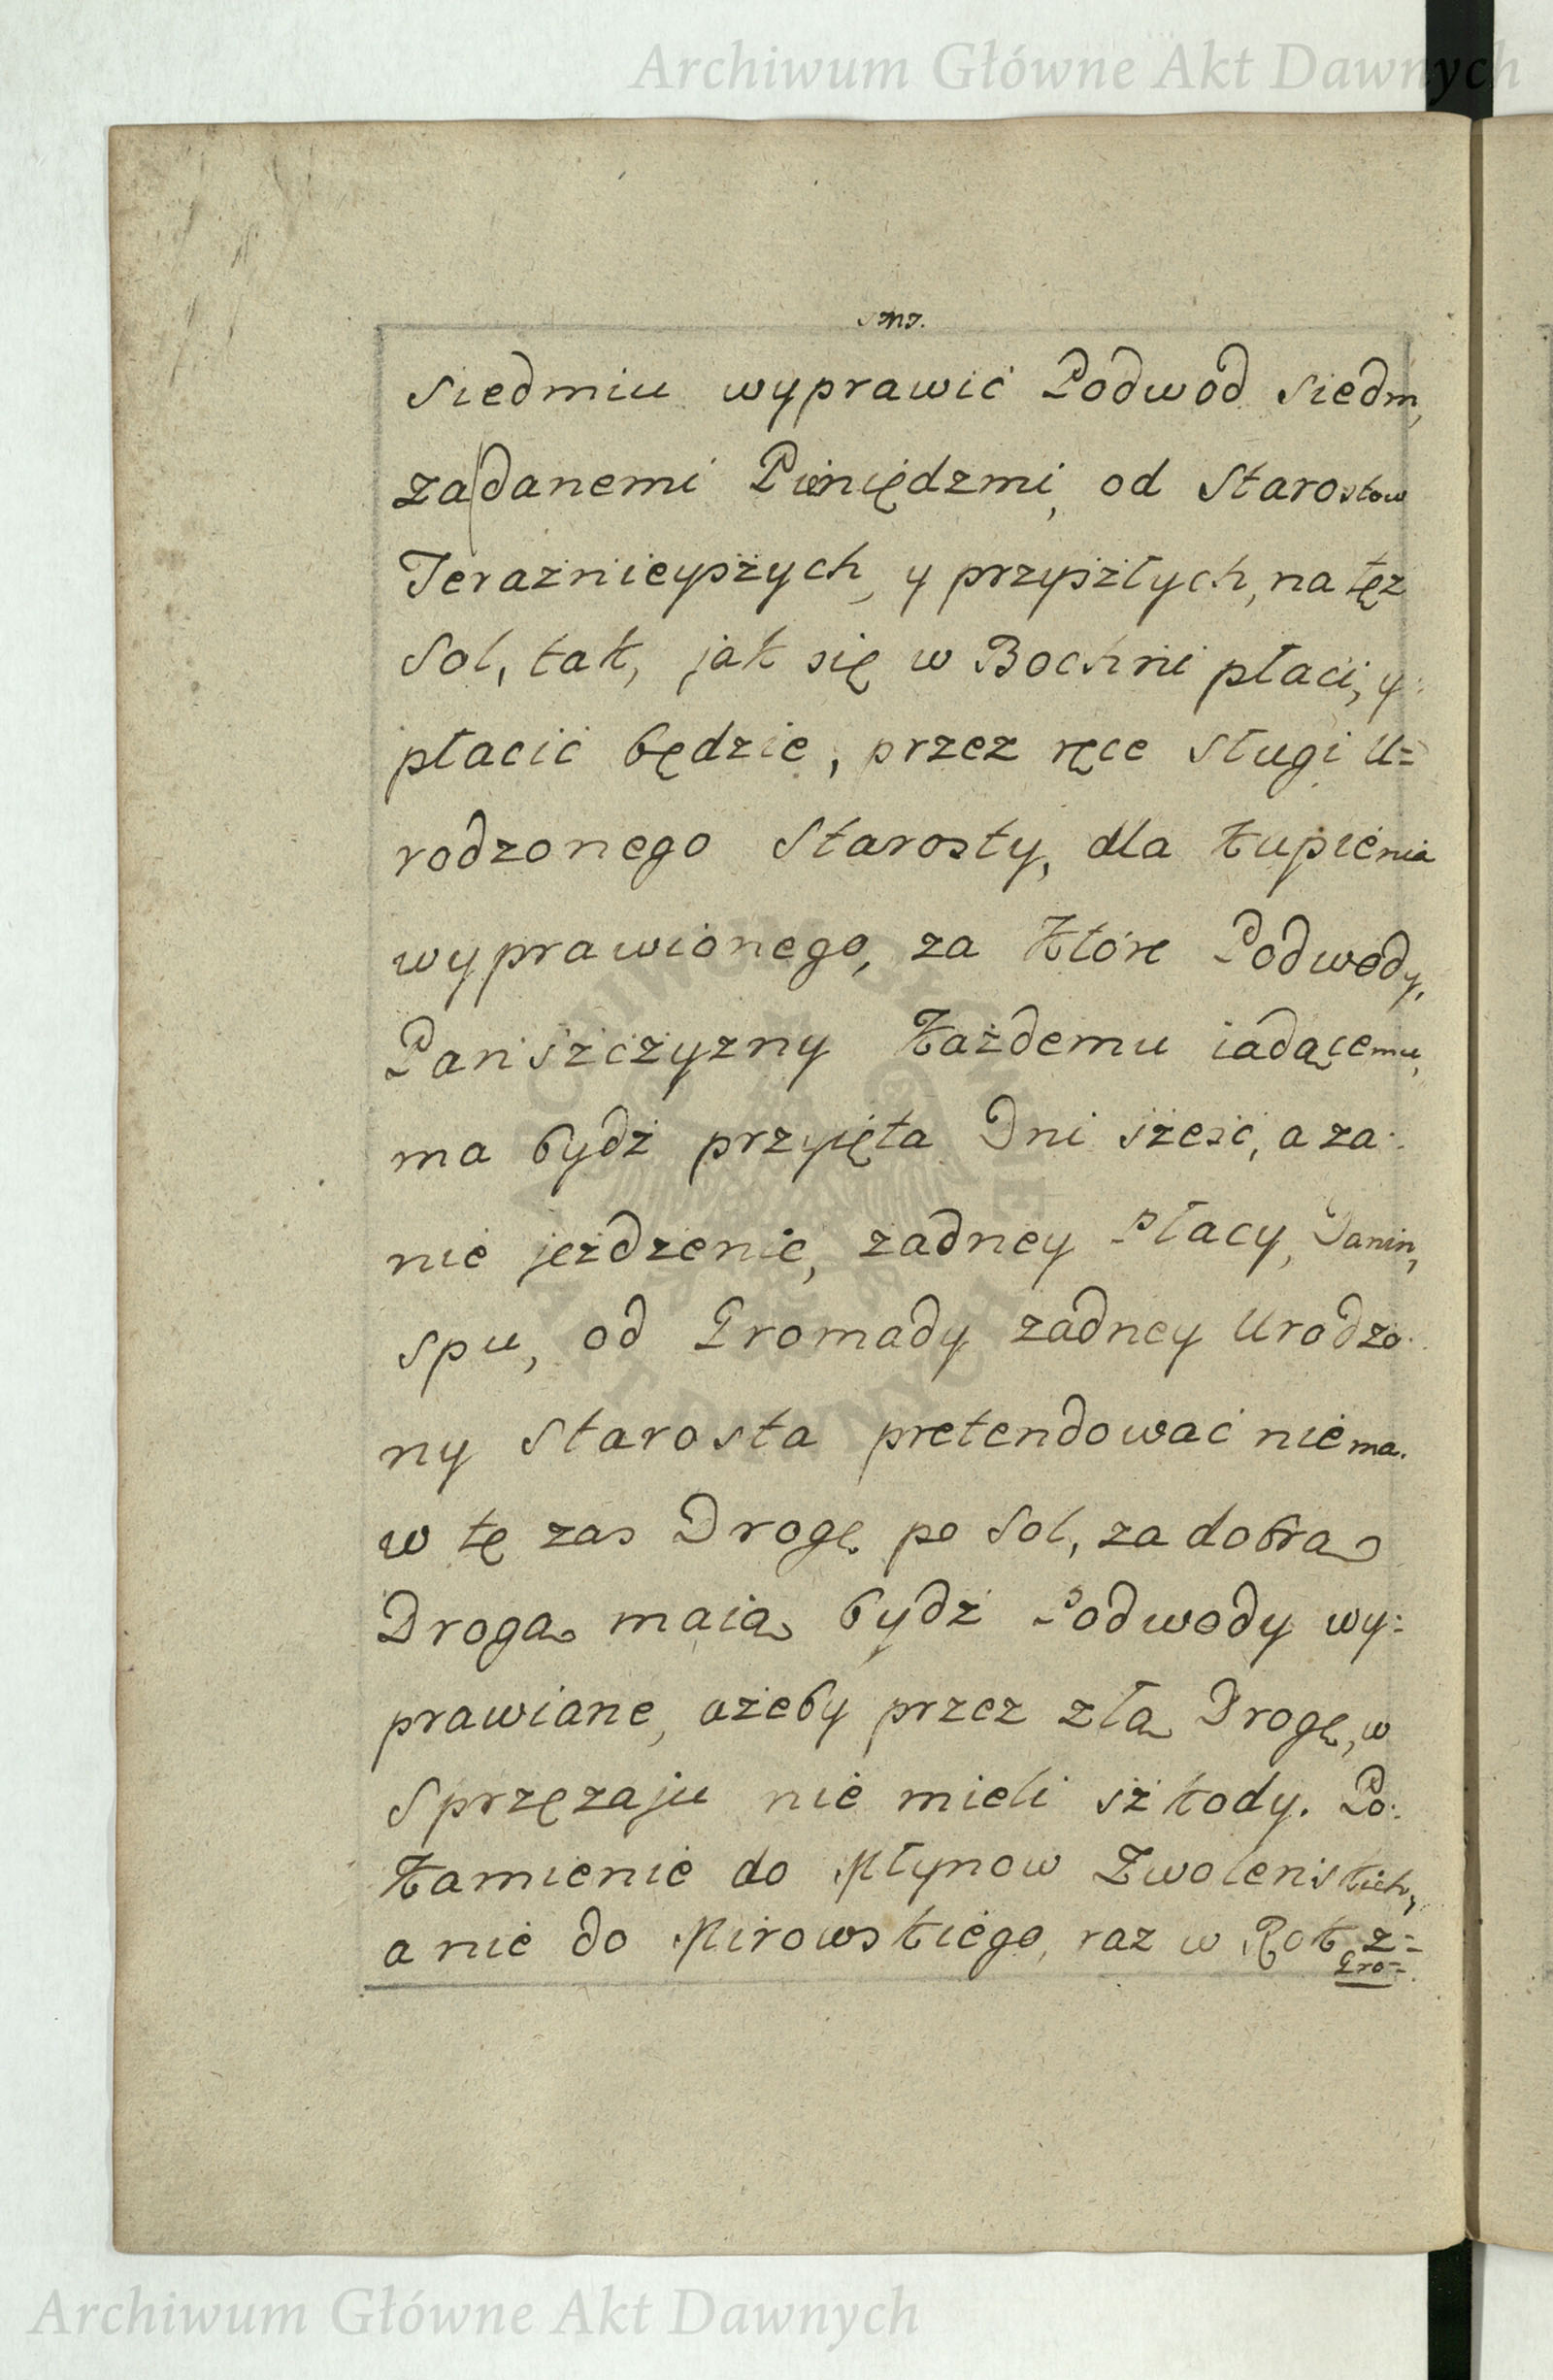 Archiwum Główne Akt Dawnych
siedmiu wyprawić Podwod siedm,
za danemi Pieniędzmi, od Starostow
Teraznieyszych, y przyszłych, na tęz
Sol, tak, jak się w Bochni płaci, y
płacić będzie, przez ręce sługi U=
rodzonego Starosty, dla kupienia
wyprawionego, za które Podwody,
Panszczyzny każdemu iadącemu,
ma bydź przyięta Dni szesć, a za
nie jezdzenie, zadney Płacy, Danin,
spu, od Gromady zadney Urodzo
ny Starosta pretendować nie ma.
w tę zas Drogę po Sol, za dobrą
Drogą maią bydź Podwody wy=
prawiane, ażeby przez złą Drogę, w
Sprzęzaju nie mieli szkody. Po
kamienie do Młynow Zwolenskich,
a nie do Mirowskiego, raz w Rok z=
Gro=
ARCHIWUM GŁÓWNE AKT DAWNYCH
Archiwum Główne Akt Dawnych